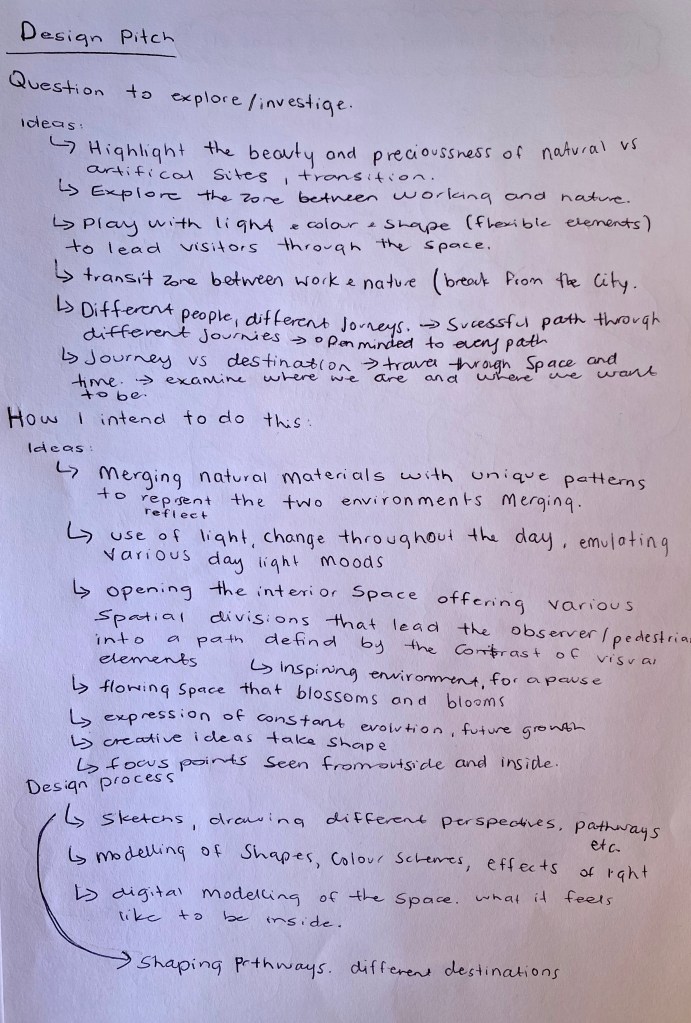 Design Pitch
Question to explore/investige.
Ideas:
↳ Highlight the beauty and precioussness of natural vs
artifical sites, transition.
↳ Explore the zone between working and nature.
↳ Play with light & colour & shape (flexible elements)
to lead visitors through the space.
↳ transit zone between work & nature (break from the city.
↳ Different people, different Jorneys. → Sucessful path through
different Journies → open minded to every path
↳ Journey vs destination → travel through Space and
time. → examine where we are and where we want
to be.
How I intend to do this:
Ideas:
↳ Merging natural materials with unique patterns
to represent the two environments merging.
reflect
↳ use of light, change throughout the day, emulating
various day light moods
↳ opening the interior space offering various
Spatial divisions that lead the observer/pedestrian
into a path defind by the contrast of visual
elements ↳ Inspiring environment, for a pause
↳ flowing space that blossoms and blooms
↳ expression of constant evolution, future growth
↳ creative ideas take shape
↳ focus points seen from outside and inside.
Design process
↳ Sketchs, drawing different perspectives, pathways
etc.
↳ modelling of shapes, colour schemes, effects of light
↳ digital modelling of the space. what it feels
like to be inside.
→ Shaping pathways. different destinations